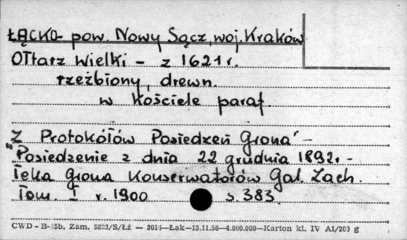 ŁĄCKO pow. Nowy Sącz, woj. Kraków
Ołtarz Wielki – z 1621 r.
rzeźbiony, drewn.
w kościele paraf.
"Z Protokółów Posiedzeń Grona" –
Posiedzenie z dnia 22 grudnia 1892. –
Teka Grona Konserwatorów Gal. Zach.
Tom. I r. 1900 s. 383.
CWD - B-15b. Zam. 5823/S/Łź — 2014—Łak—15.11.56—4.000.000—Karton kl. IV A1/200 g